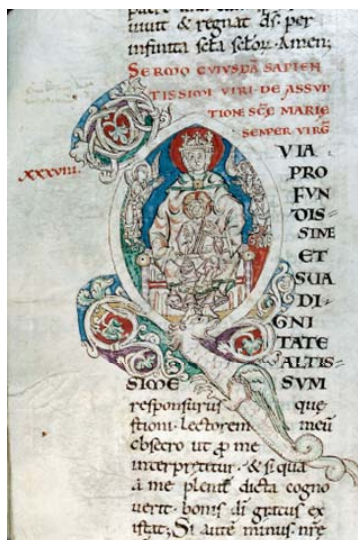 iuuit & regnat ds. per
infinita scła scłor. Amen;
SERMO CVIVSDĀ SAPIEN
TISSIMI VIRI DE ASSVP
TIONE SCĘ MARIE
SEMPER VIRG̅
XXXVIII.
VIA
PRO
FVN
DIS-
SIME
ET
SVA
DI-
GNI
TATE
ALTIS-
SIME SVM
responsurus que
stioni. Lectorem meū
obsecro ut ꝓ me
interpretitur. & si qua
a me plenit dicta cogno
uerit. bonis di gratus ex
istat; Si autē minus. nr̄e